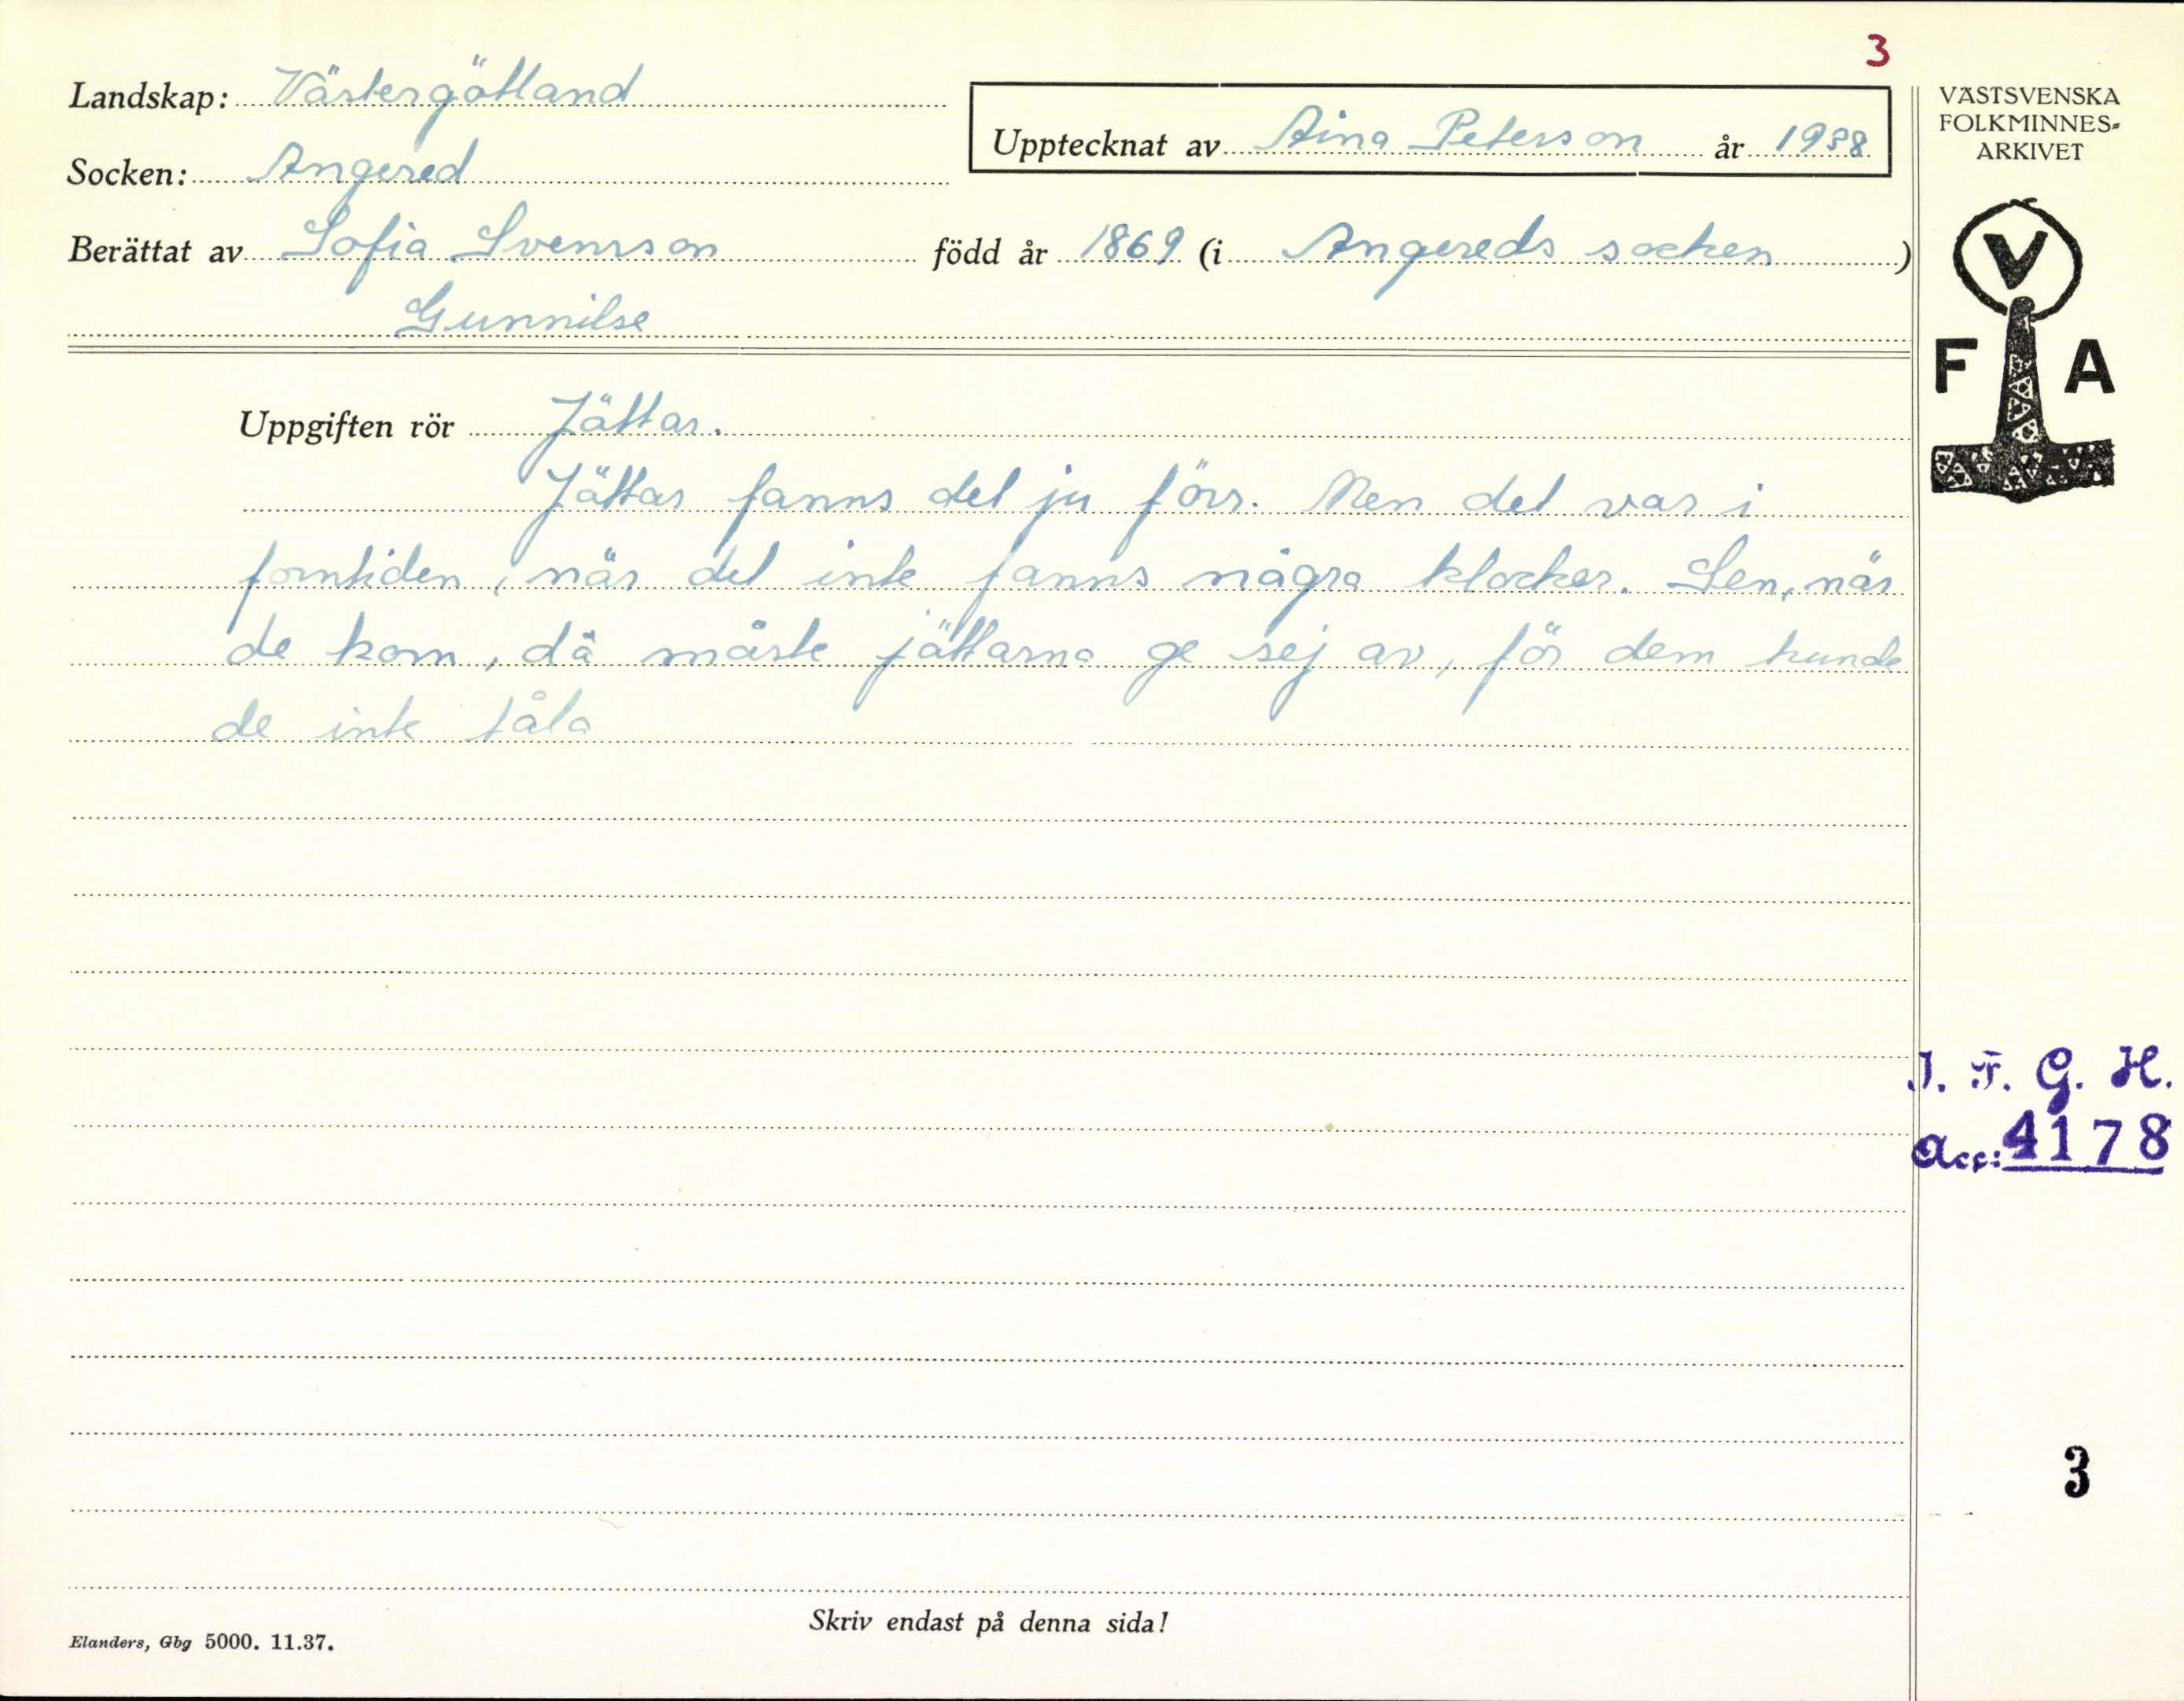 3
Landskap: Västergötland
Upptecknat av Aina Peterson år 1938
VÄSTSVENSKA
FOLKMINNES-
ARKIVET
Socken: Angered
Berättat av Sofia Svensson född år 1869 (i Angereds socken)
Gunnilse
V
F A
Uppgiften rör Jättar.
Jättar fanns det ju förr. Men det var i
forntiden, när det inte fanns några klockor. Sen, när
de kom, då måste jättarna ge sej av, för dem kunde
de inte tåla
I. F. G. H.
Acc: 4178
3
Skriv endast på denna sida!
Elanders, Gbg 5000. 11.37.